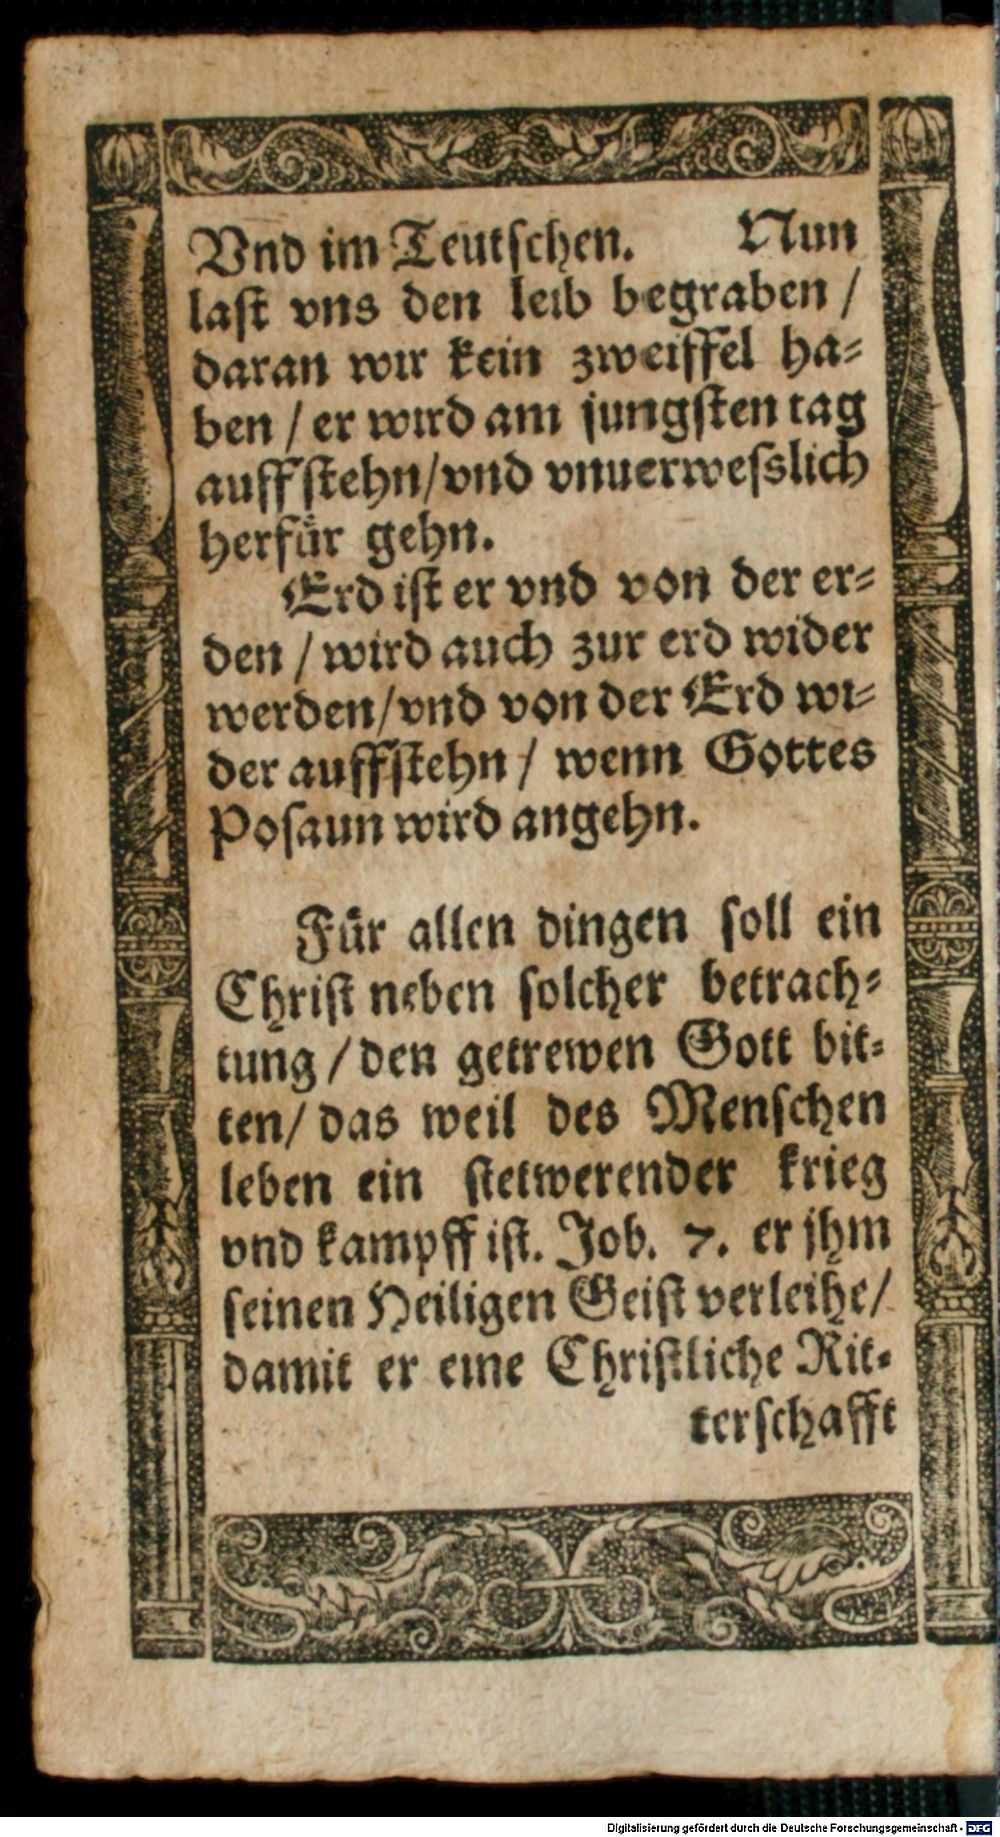 Vnd im Teutschen. Nun
last vns den leib begraben /
daran wir kein zweiffel ha-
ben / er wird am jungsten tag
auffstehn/vnd vnuerwesslich
herfür gehn.
Erd ist er vnd von der er-
den / wird auch zur erd wider
werden/vnd von der Erd wi-
der auffstehn / wenn Gottes
Posaun wird angehn.
Für allen dingen soll ein
Christ neben solcher betrach-
tung / den getrewen Gott bit-
ten/ das weil des Menschen
leben ein stetwerender krieg
vnd kampff ist. Job. 7. er jhm
seinen Heiligen Geist verleihe/
damit er eine Christliche Rit-
terschafft
Digitalisierung gefördert durch die Deutsche Forschungsgemeinschaft - DFG